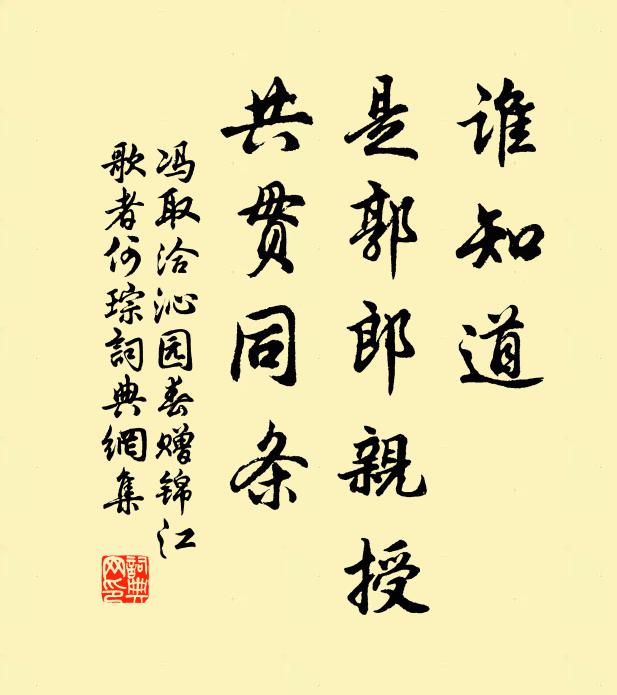 谁知道
是郭郎親授
共贯同条
冯取洽沁园春赠锦江
歌者何琮詞典網集
詞典
网印